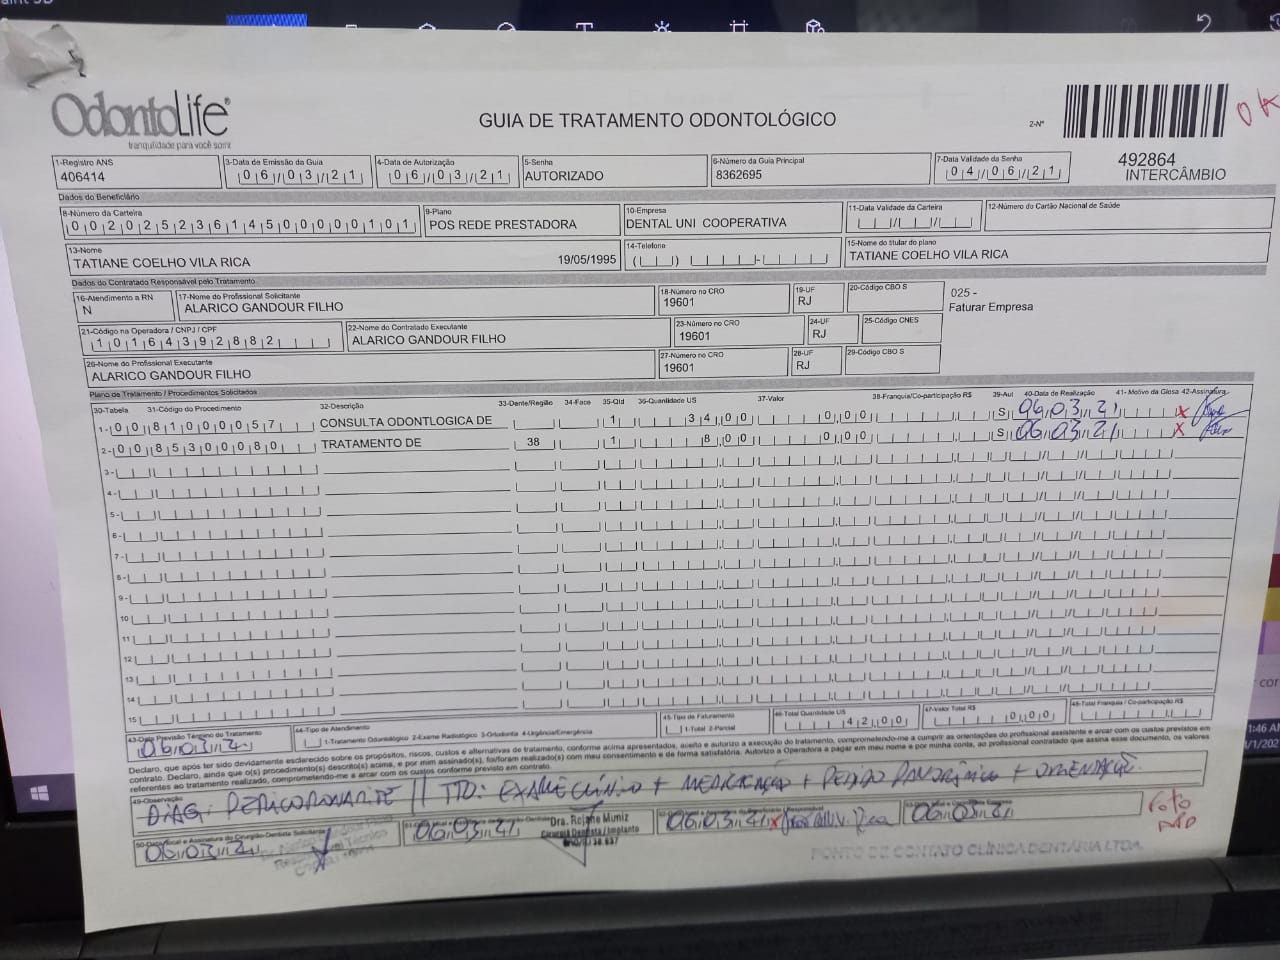 OdontoLife®
tranquilidade para você sorrir
GUIA DE TRATAMENTO ODONTOLÓGICO
2-Nº
492864
INTERCÂMBIO
OK
1-Registro ANS
406414
3-Data de Emissão da Guia
06/03/21
4-Data de Autorização
06/03/21
5-Senha
AUTORIZADO
6-Número da Guia Principal
8362695
7-Data Validade da Senha
04/06/21
Dados do Beneficiário
8-Número da Carteira
00202523614500000101
9-Plano
POS REDE PRESTADORA
10-Empresa
DENTAL UNI COOPERATIVA
11-Data Validade da Carteira
12-Número do Cartão Nacional de Saúde
13-Nome
TATIANE COELHO VILA RICA 19/05/1995
14-Telefone
15-Nome do titular do plano
TATIANE COELHO VILA RICA
Dados do Contratado Responsável pelo Tratamento
16-Atendimento a RN
N
17-Nome do Profissional Solicitante
ALARICO GANDOUR FILHO
18-Número no CRO
19601
19-UF
RJ
20-Código CBO S
025 -
Faturar Empresa
21-Código na Operadora / CNPJ / CPF
10164392882
22-Nome do Contratado Executante
ALARICO GANDOUR FILHO
23-Número no CRO
19601
24-UF
RJ
25-Código CNES
26-Nome do Profissional Executante
ALARICO GANDOUR FILHO
27-Número no CRO
19601
28-UF
RJ
29-Código CBO S
Plano de Tratamento / Procedimentos Solicitados
30-Tabela 31-Código do Procedimento 32-Descrição 33-Dente/Região 34-Face 35-Qtd 36-Quantidade US 37-Valor 38-Franquia/Co-participação R$ 39-Aut 40-Data de Realização 41- Motivo da Glosa 42-Assinatura
1- 00 81000057 CONSULTA ODONTLOGICA DE 1 34,00 0,00 S 06/03/21 x
2- 00 85300080 TRATAMENTO DE 38 1 8,00 0,00 S 06/03/21 x
3-
4-
5-
6-
7-
8-
9-
10
11
12
13
14
15
43-Data Previsão Término do Tratamento
06/03/21
44-Tipo de Atendimento
1-Tratamento Odontológico 2-Exame Radiológico 3-Ortodontia 4-Urgência/Emergência
45-Tipo de Faturamento
1-Total 2-Parcial
46-Total Quantidade US
42,00
47-Valor Total R$
0,00
48-Total Franquia / Co-participação R$
Declaro, que após ter sido devidamente esclarecido sobre os propósitos, riscos, custos e alternativas de tratamento, conforme acima apresentados, aceito e autorizo a execução do tratamento, comprometendo-me a cumprir as orientações do profissional assistente e arcar com os custos previstos em
contrato. Declaro, ainda que o(s) procedimento(s) descrito(s) acima, e por mim assinado(s), fo/foram realizado(s) com meu consentimento e de forma satisfatória. Autorizo a Operadora a pagar em meu nome e por minha conta, ao profissional contratado que assina esse documento, os valores
referentes ao tratamento realizado, comprometendo-me a arcar com os custos conforme previsto em contrato.
49-Observação
DIAG: PERICORONARITE // TTO: EXAME CLÍNICO + MEDICAÇÃO + PEDIDO PANORÂMICO + ORIENTAÇÃO
50-Data, local e Assinatura do Cirurgião-Dentista Solicitante
06/03/21
06/03/21
Dra. Rejane Muniz
Cirurgiã Dentista / Implante
06/03/21 x
06/03/21
PONTO DE CONTATO CLÍNICA DENTÁRIA LTDA.
Foto
1:46 AM